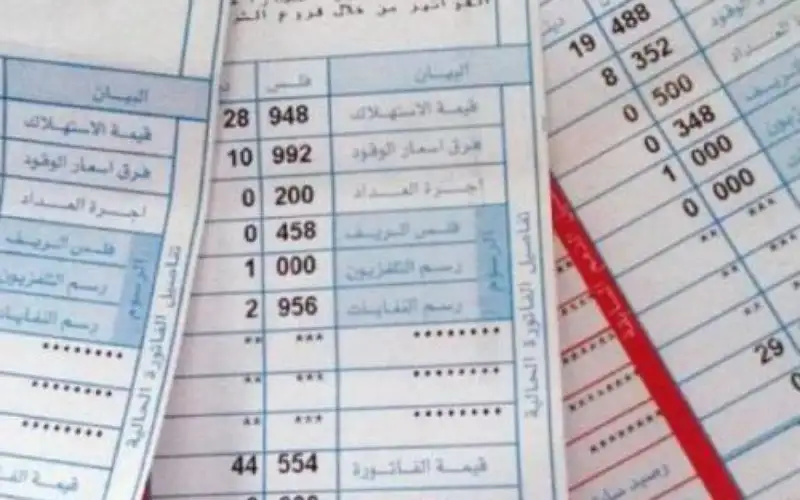 الفواتير من خلال فروع
البيان فلس
قيمة الاستهلاك 948 28
فرق اسعار الوقود 992 10
اجرة العداد 200 0
فلس الريف 458 0
رسم التلفزيون 000 1
رسم النفايات 956 2
******** *** **
******** *** **
******** *** **
قيمة الفاتورة 554 44
الرسوم
تفاصيل الفاتورة الحالية
البيان
قيمة الاستهلاك
فرق اسعار الوقود
اجرة العداد
فلس الريف
رسم التلفزيون
رسم النفايات
********
********
********
الرسوم
تفاصيل الفاتورة الحالية
488 19
352 8
500 0
348 0
000 1
000 0
*** **
*** **
*** **
29
الوقود
العداد
الريف
رصيد